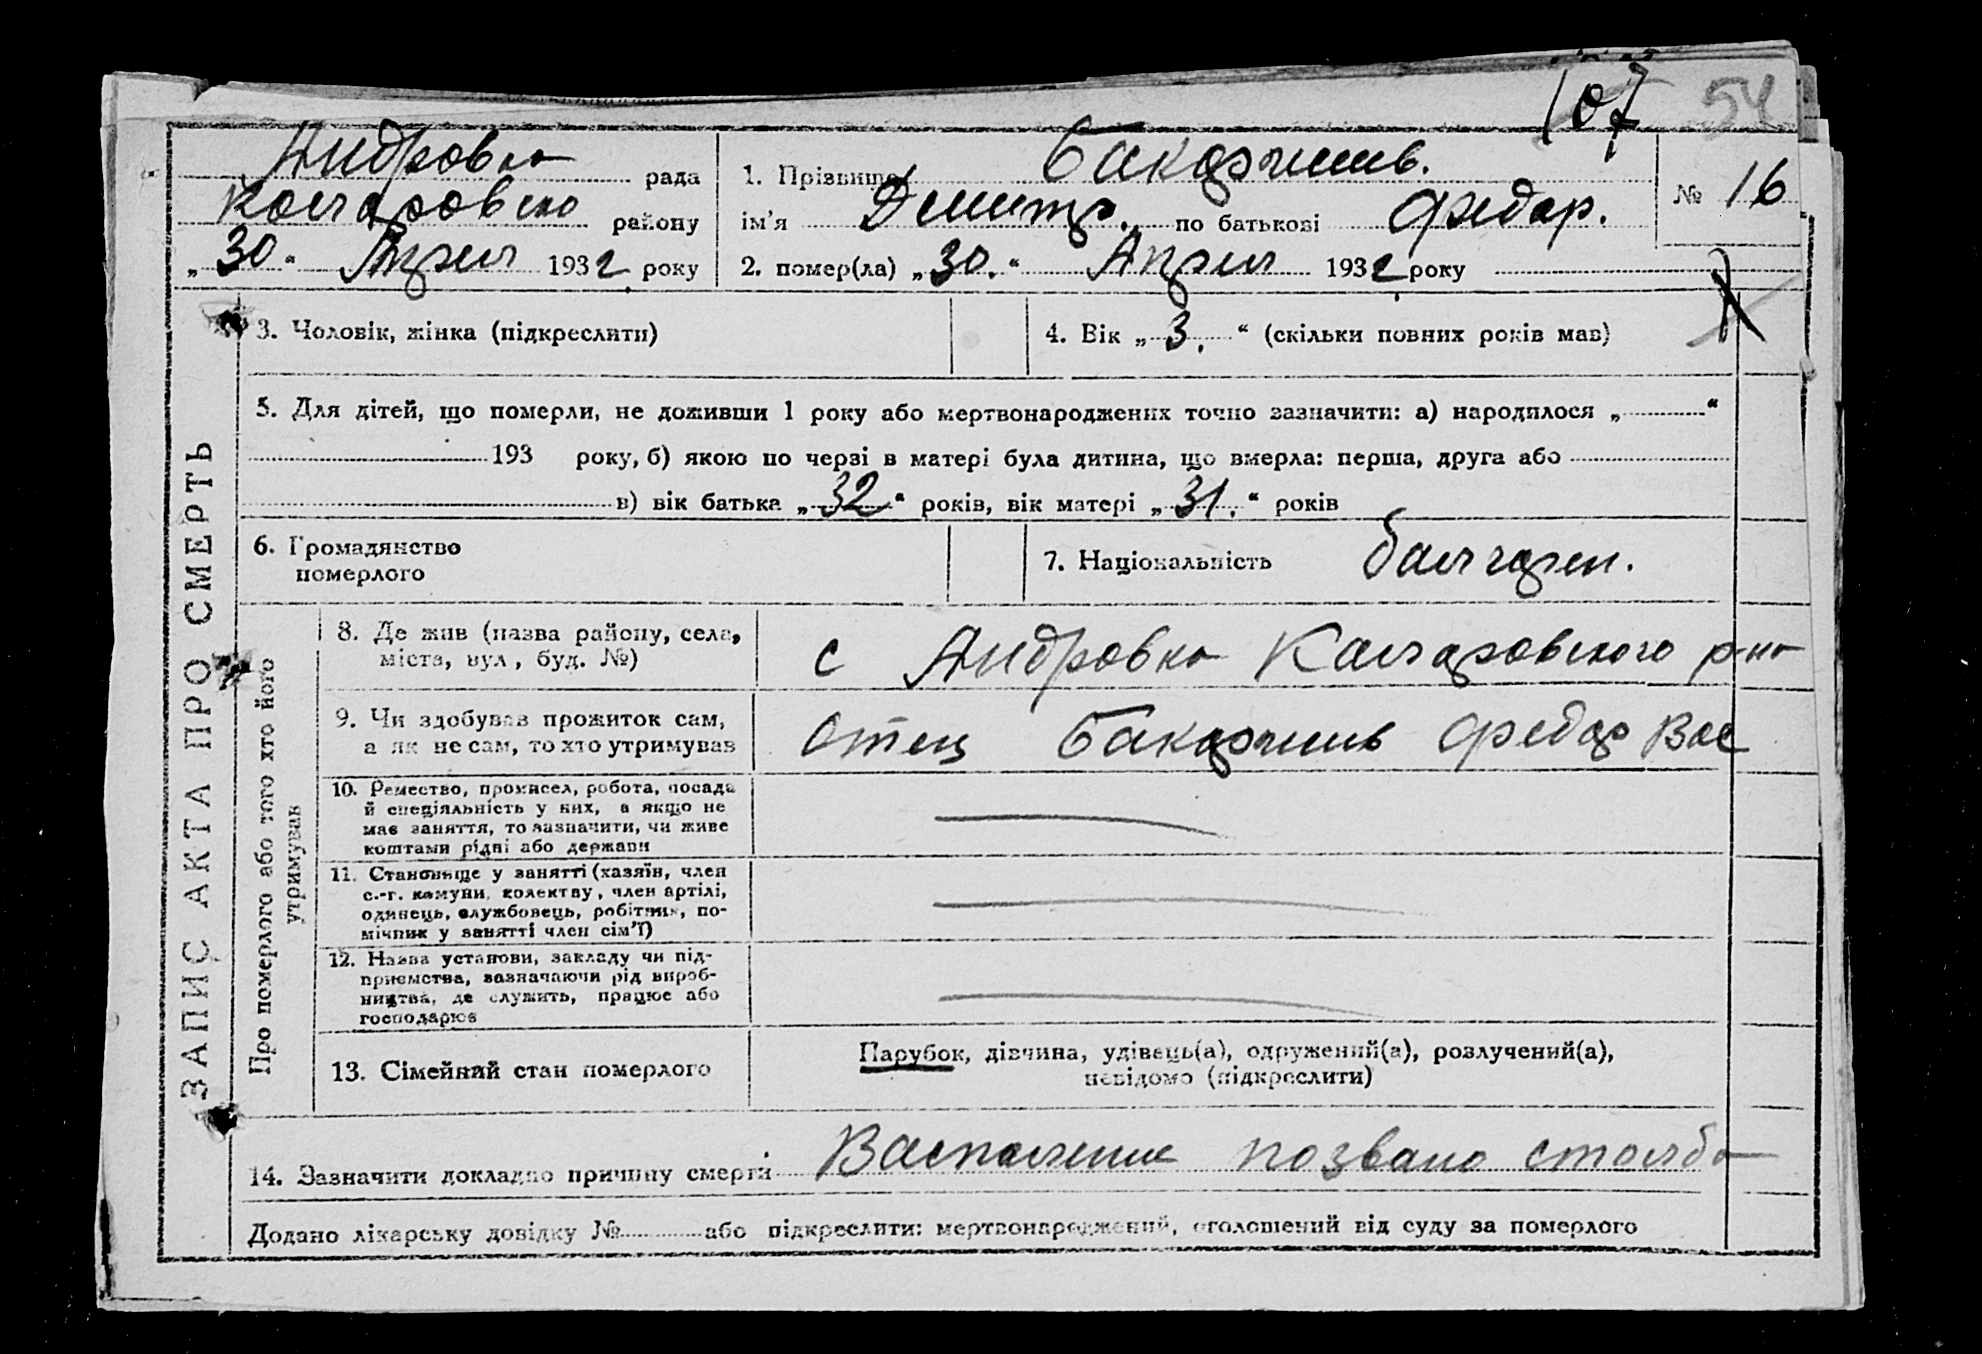 107 54
Андровка рада
Колларовско району
„30“ Апрел 1932 року
1. Прізвище Бакаржиев.
№ 16
ім’я Дмитр. по батькові Федор.
2. помер(ла) „30.“ Апрел 1932 року
3. Чоловік, жінка (підкреслити)
4. Вік „3.“ (скільки повних років мав)
5. Для дітей, що померли, не доживши 1 року або мертвонароджених точно зазначити: а) народилося „ “
193 року, б) якою по черзі в матері була дитина, що вмерла: перша, друга або
в) вік батька „32“ років, вік матері „31.“ років
6. Громадянство
померлого
7. Національність болгарин.
ЗАПИС АКТА ПРО СМЕРТЬ
Про померлого або того хто його
утримував
8. Де жив (назва району, села,
міста, вул, буд. №)
с Андровка Колларовского р-на
9. Чи здобував прожиток сам,
а як не сам, то хто утримував
Отец Федор Вас
10. Ремество, промисел, робота, посада
й спеціяльність у них, а якщо не
має заняття, то зазначити, чи живе
коштами рідні або держави
11. Становище у занятті (хазяїн, член
с.-г. комуни, колективу, член артілі,
одинець, службовець, робітник, по-
мічник у занятті член сім’ї)
12. Назва установи, закладу чи під-
приємства, зазначаючи рід вироб-
ництва, де служить, працює або
господарює
13. Сімейний стан померлого
Парубок, дівчина, удівець(а), одружений(а), розлучений(а),
невідомо (підкреслити)
14. Зазначити докладно причину смерті Васполение позвано столба
Додано лікарську довідку № або підкреслити: мертвонароджений, оголошений від суду за померлого